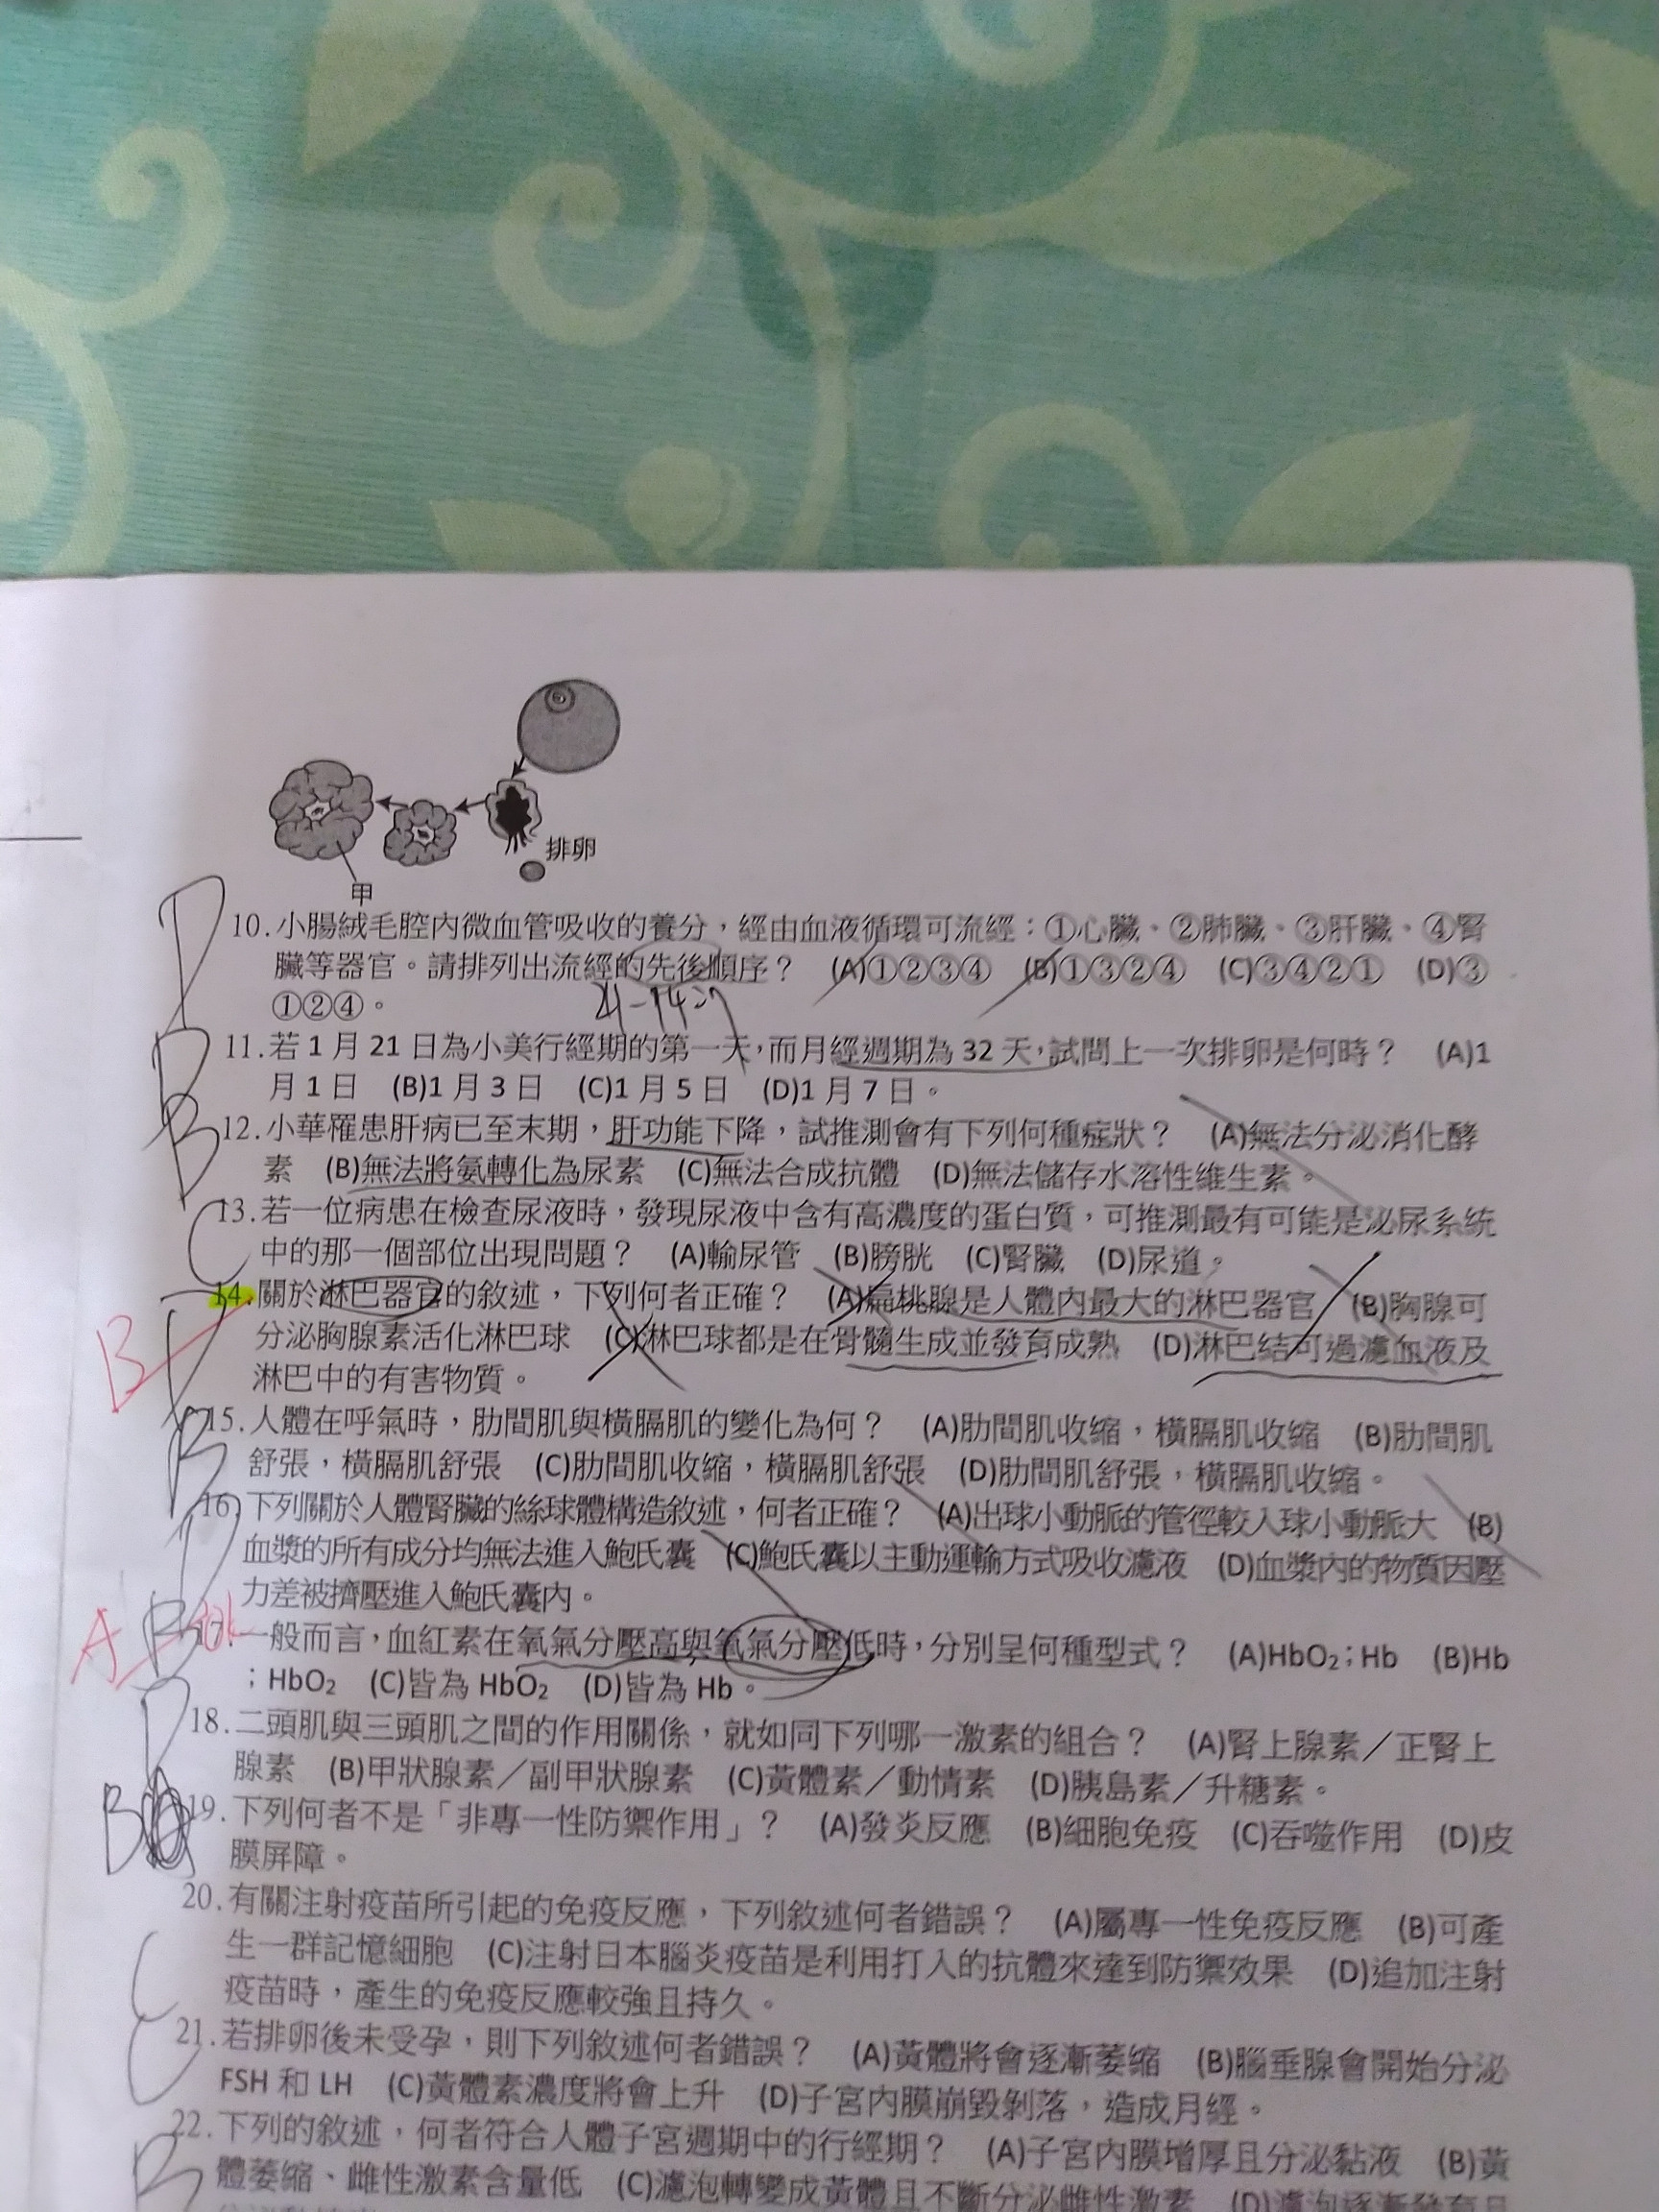 排卵
甲
D
10.小腸絨毛腔內微血管吸收的養分，經由血液循環可流經：①心臟、②肺臟、③肝臟、④腎
臟等器官。請排列出流經的先後順序？ (A)①②③④ (B)①③②④ (C)③④②① (D)③
①②④。
21-14=7
B
11.若1月21日為小美行經期的第一天，而月經週期為32天，試問上一次排卵是何時？ (A)1
月1日 (B)1月3日 (C)1月5日 (D)1月7日。
B
12.小華罹患肝病已至末期，肝功能下降，試推測會有下列何種症狀？ (A)無法分泌消化酵
素 (B)無法將氨轉化為尿素 (C)無法合成抗體 (D)無法儲存水溶性維生素。
C
13.若一位病患在檢查尿液時，發現尿液中含有高濃度的蛋白質，可推測最有可能是泌尿系統
中的那一個部位出現問題？ (A)輸尿管 (B)膀胱 (C)腎臟 (D)尿道。
B D
14.關於淋巴器官的敘述，下列何者正確？ (A)扁桃腺是人體內最大的淋巴器官 (B)胸腺可
分泌胸腺素活化淋巴球 (C)淋巴球都是在骨髓生成並發育成熟 (D)淋巴結可過濾血液及
淋巴中的有害物質。
B
15.人體在呼氣時，肋間肌與橫膈肌的變化為何？ (A)肋間肌收縮，橫膈肌收縮 (B)肋間肌
舒張，橫膈肌舒張 (C)肋間肌收縮，橫膈肌舒張 (D)肋間肌舒張，橫膈肌收縮。
D
16.下列關於人體腎臟的絲球體構造敘述，何者正確？ (A)出球小動脈的管徑較入球小動脈大 (B)
血漿的所有成分均無法進入鮑氏囊 (C)鮑氏囊以主動運輸方式吸收濾液 (D)血漿內的物質因壓
力差被擠壓進入鮑氏囊內。
A B
17.一般而言，血紅素在氧氣分壓高與氧氣分壓低時，分別呈何種型式？ (A)HbO₂；Hb (B)Hb
；HbO₂ (C)皆為 HbO₂ (D)皆為 Hb。
D
18.二頭肌與三頭肌之間的作用關係，就如同下列哪一激素的組合？ (A)腎上腺素／正腎上
腺素 (B)甲狀腺素／副甲狀腺素 (C)黃體素／動情素 (D)胰島素／升糖素。
B
19.下列何者不是「非專一性防禦作用」？ (A)發炎反應 (B)細胞免疫 (C)吞噬作用 (D)皮
膜屏障。
C
20.有關注射疫苗所引起的免疫反應，下列敘述何者錯誤？ (A)屬專一性免疫反應 (B)可產
生一群記憶細胞 (C)注射日本腦炎疫苗是利用打入的抗體來達到防禦效果 (D)追加注射
疫苗時，產生的免疫反應較強且持久。
C
21.若排卵後未受孕，則下列敘述何者錯誤？ (A)黃體將會逐漸萎縮 (B)腦垂腺會開始分泌
FSH 和 LH (C)黃體素濃度將會上升 (D)子宮內膜崩毀剝落，造成月經。
B
22.下列的敘述，何者符合人體子宮週期中的行經期？ (A)子宮內膜增厚且分泌黏液 (B)黃
體萎縮、雌性激素含量低 (C)濾泡轉變成黃體且不斷分泌雌性激素 (D)濾泡逐漸發育且